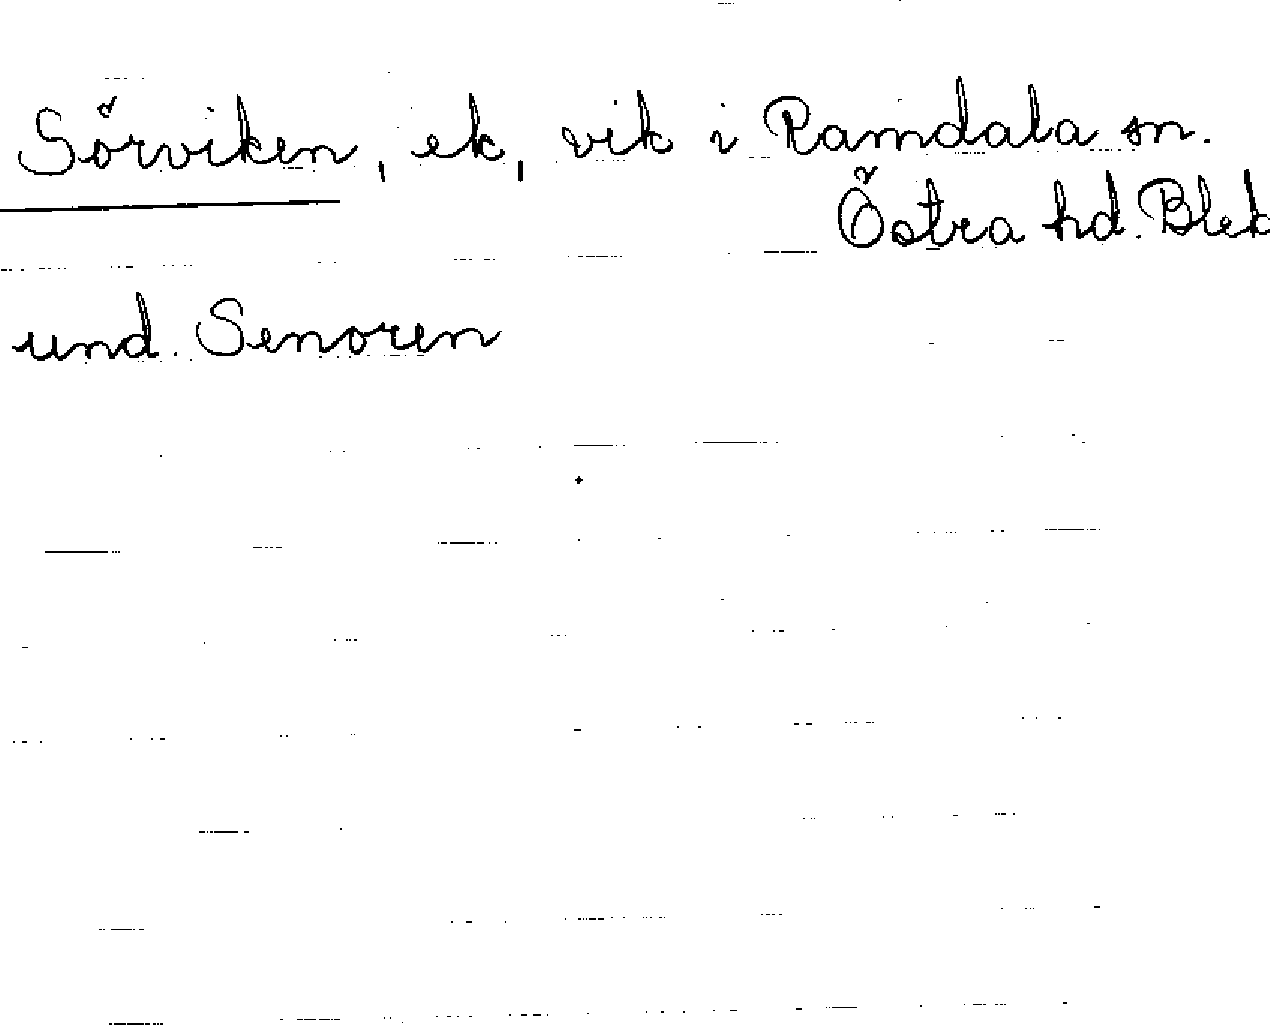 Sörviken, ek, vik i Ramdala sn.
Östra hd. Blek
und. Senoren